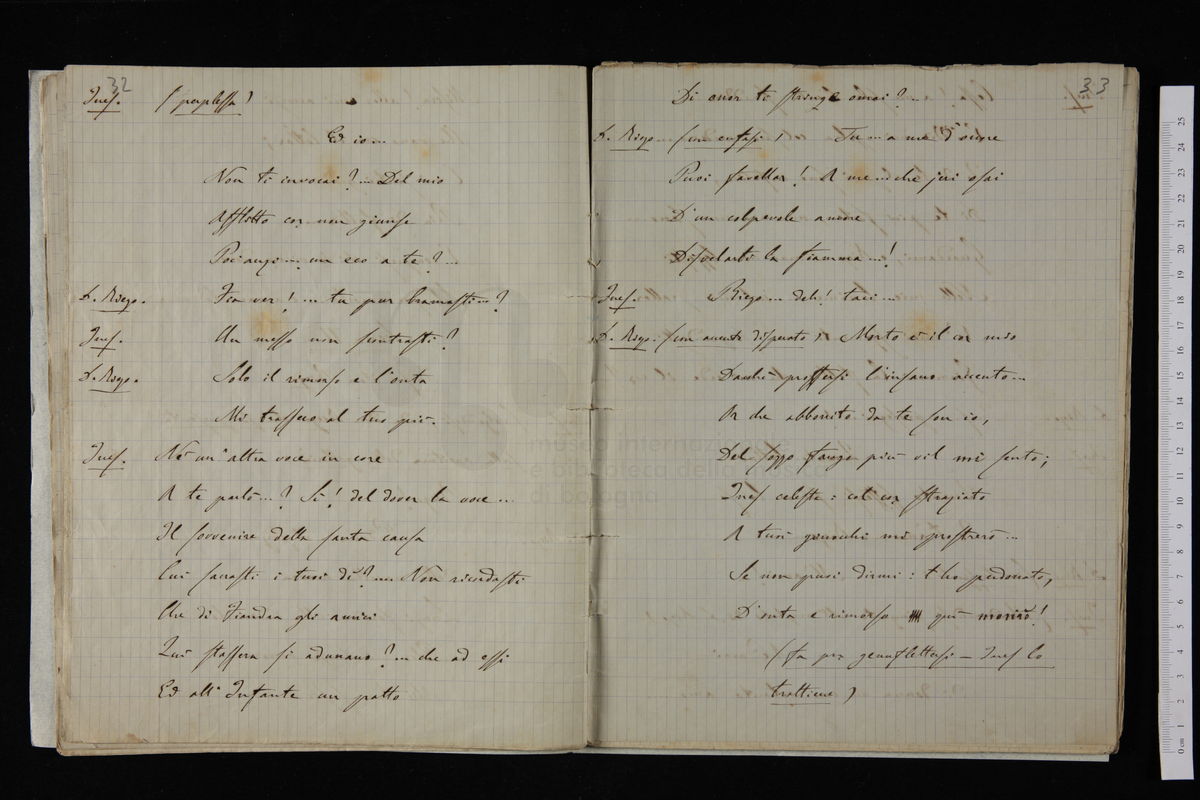 32
Ines. (perplessa)
Ed io...
Non ti invocai?... Del mio
Afflitto cor non giunse
Poi anzi... un eco a te?...
D. Diego. Fia ver!... tu pur bramasti...?
Ines. Un messo non scontrasti?
D. Diego. Solo il rimorso e l'onta
Mi trassero al tuo piè.
Ines. Nè un'altra voce in core
A te parlò...? Sì! del dover la voce...
Il sovvenire della santa causa
Cui sacrasti i tuoi dì?... Non ricordasti
Che di Fiandra gli amici
Qui stassera si adunano?... che ad essi
Ed all'Infante un patto
33
Di onor ti stringe omai?...
D. Diego. (con enfasi) Tu... a me d'onore
Puoi favellar! A me... che jeri osai
D'un colpevole amore
Disvelarti la fiamma...!
Ines. Diego... deh! taci...
D. Diego. (con accento disperato) Morto è il cor mio
Dacchè proffersi l'insano accento...
A che abborrito da te son io,
Del sozzo fango più vil mi sento;
Ines celeste: col cor straziato
A tuoi ginocchi mi prostrerò...
Se non puoi dirmi: t'ho perdonato,
D'onta e rimorso qui morirò!
(fa per genuflettersi — Ines lo
trattiene)
museo internazionale
biblioteca della musica
di bologna
0 cm 1 2 3 4 5 6 7 8 9 10 11 12 13 14 15 16 17 18 19 20 21 22 23 24 25